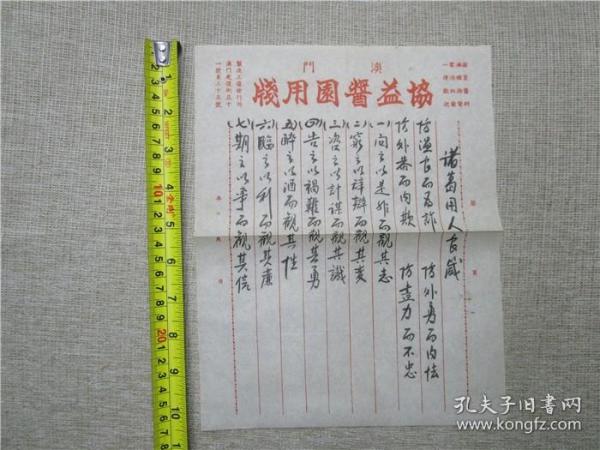 澳門
協益醬園用牋
諸葛用人官箴
防溫良而為詐 防外勇而內怯
防外恭而內欺 防盡力而不忠
(一)問之以是非而觀其志
(二)窮之以詞辯而觀其變
(三)咨之以計謀而觀其識
(四)告之以禍難而觀其勇
(五)醉之以酒而觀其性
(六)臨之以利而觀其廉
(七)期之以事而觀其信
孔夫子旧书网
www.kongfz.com